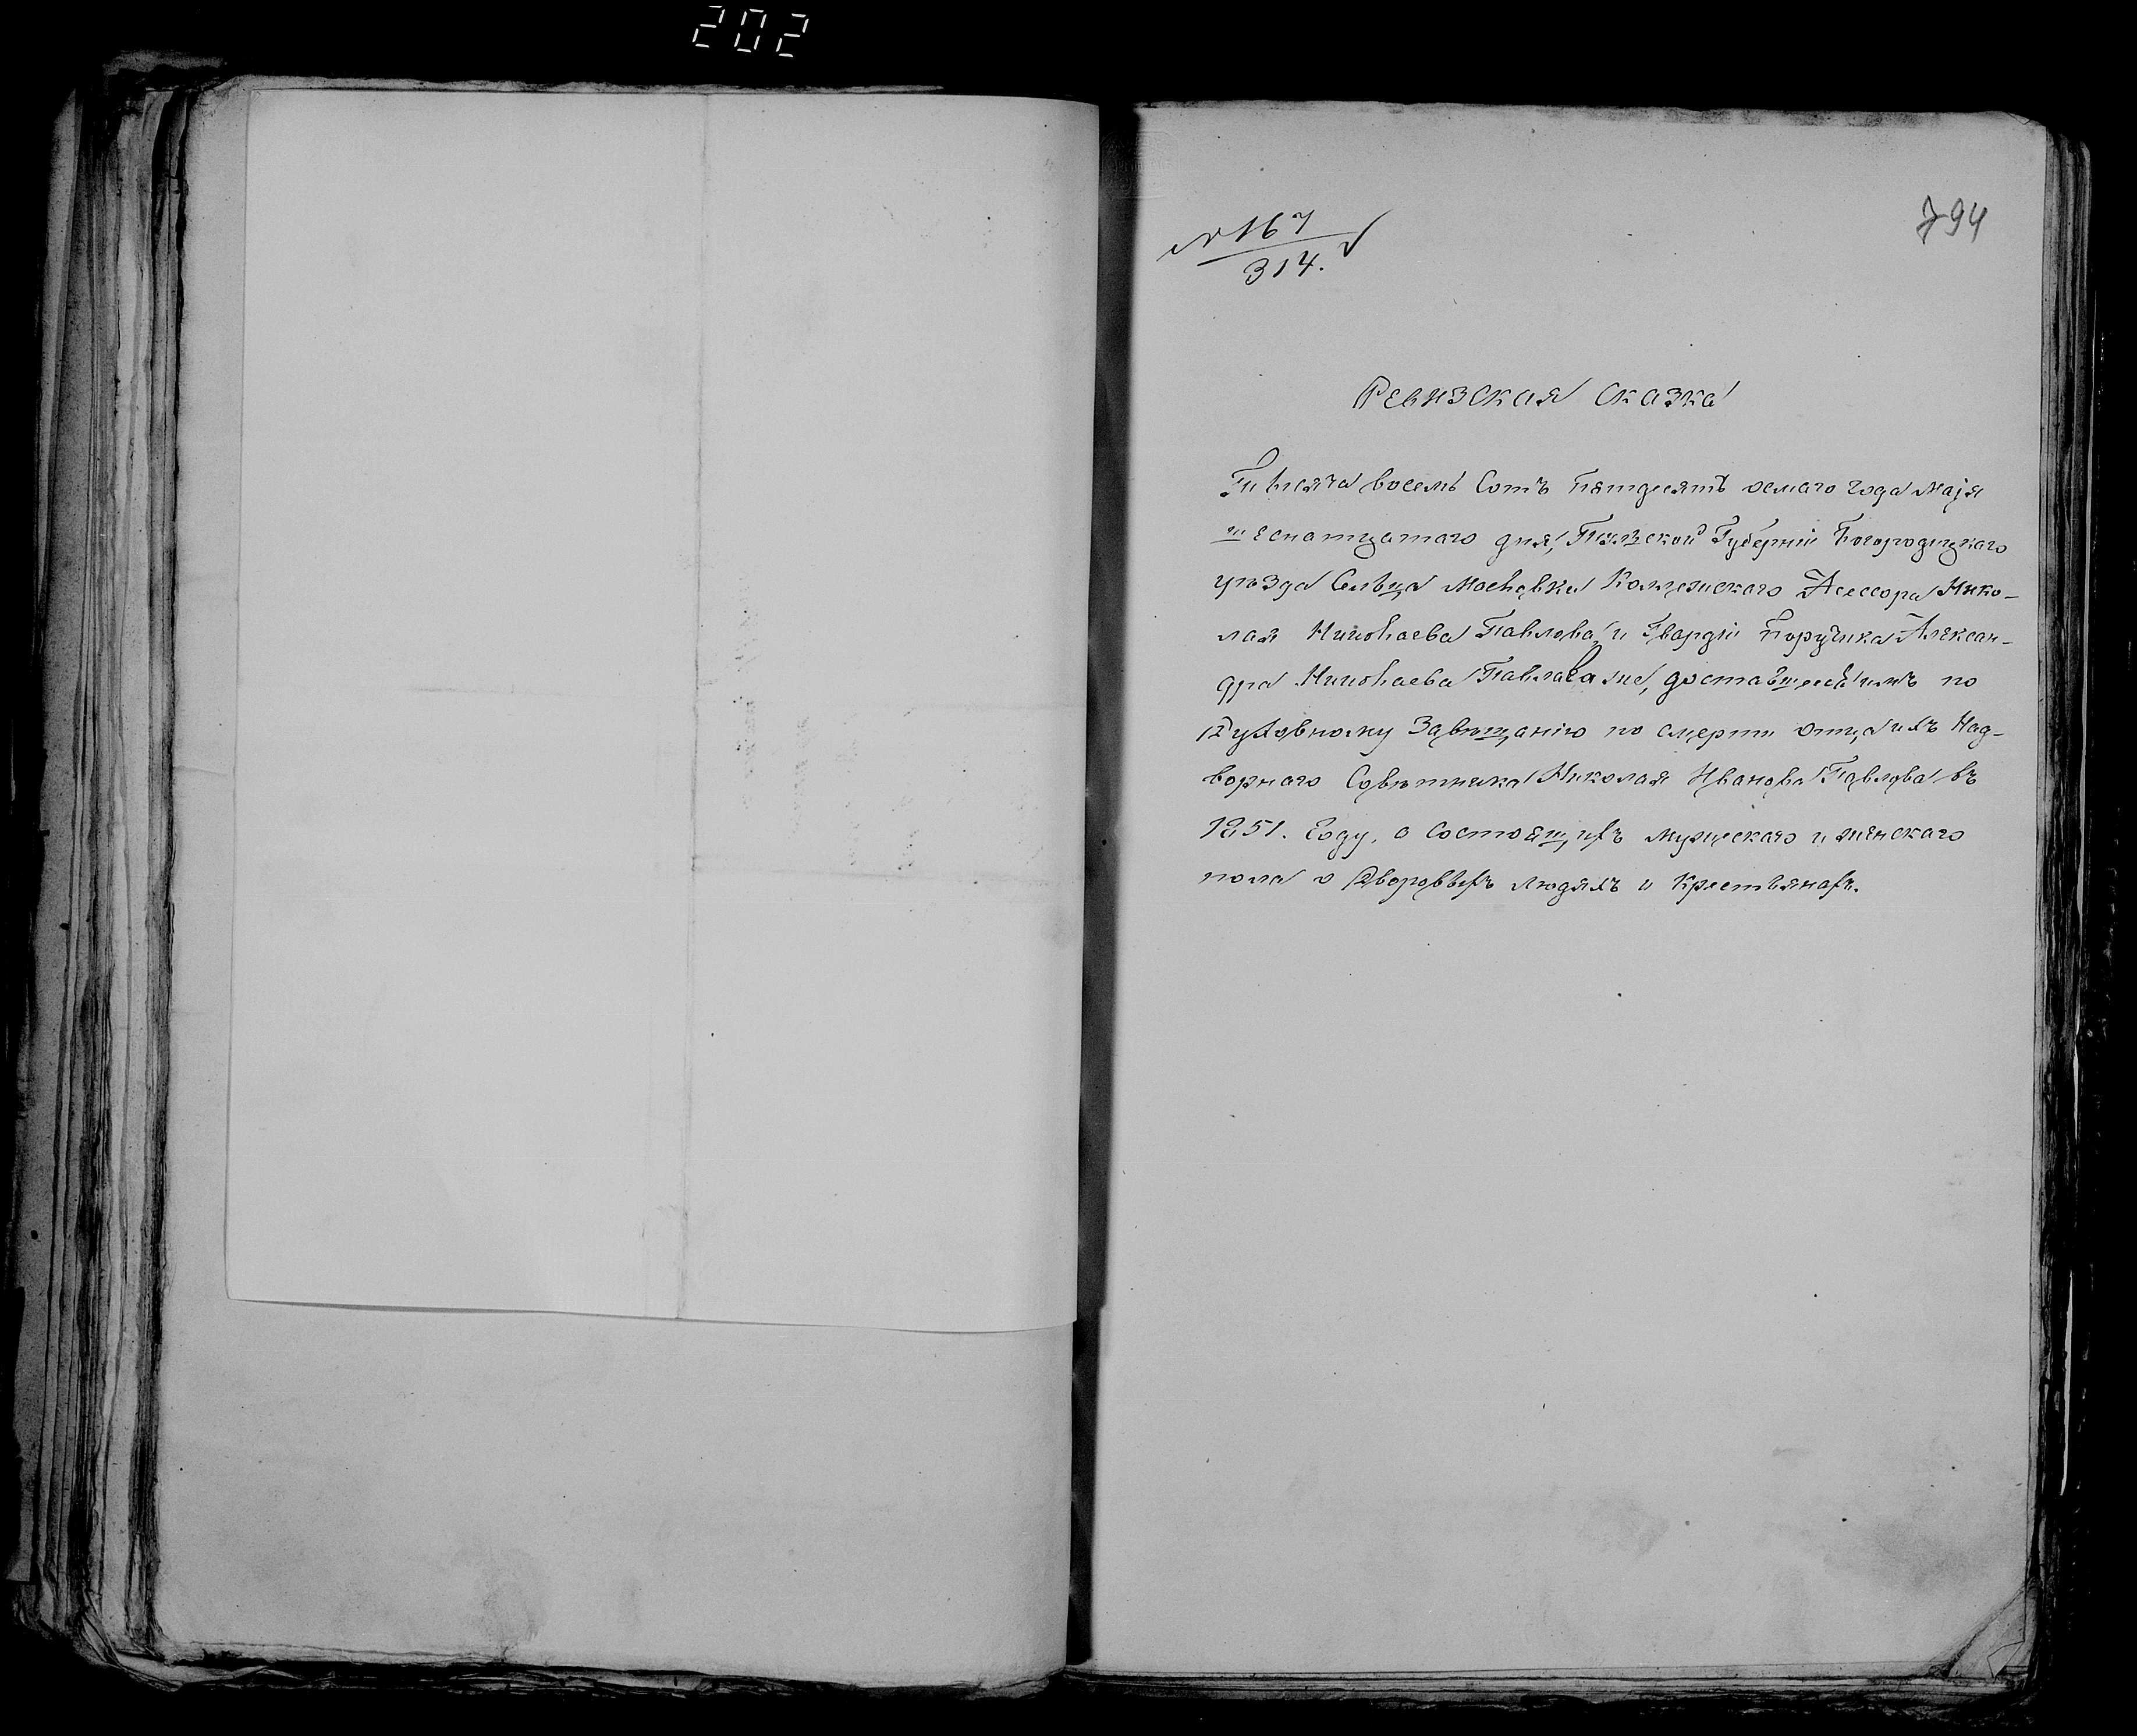 202
794
№ 167
314.
Ревизская сказка
Тысяча восемь Сотъ пятдесятъ осмаго года Маія
шеснатцатаго дня, Тульской Губерніи Богородицкаго
уѣзда Сельца Колежскаго Асессора Нико-
лая Николаева Павлова и Гвардіи Поручика Алексан-
дра Николаева Павлова же, доставшееся имъ по
Духовному Завѣщанію по смерти отца ихъ Над-
ворнаго Совѣтника Николая Иванова Павлова въ
1851. Году, о Состоящихъ мужескаго и женскаго
пола о Дворовыхъ людяхъ и Крестьянахъ.